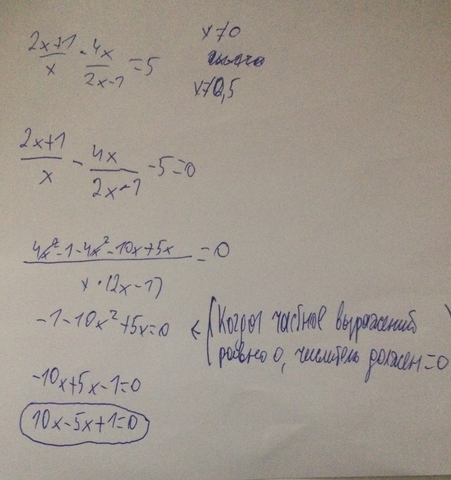 (2x+1)/x - 4x/(2x-1) = 5
x≠0
x≠0,5
(2x+1)/x - 4x/(2x-1) - 5=0
(4x²-1-4x²-10x+5x)/(x·(2x-1)) = 0
-1-10x²+5x=0 ← (Когда частное выражений
равно 0, числитель должен=0)
-10x+5x-1=0
10x-5x+1=0